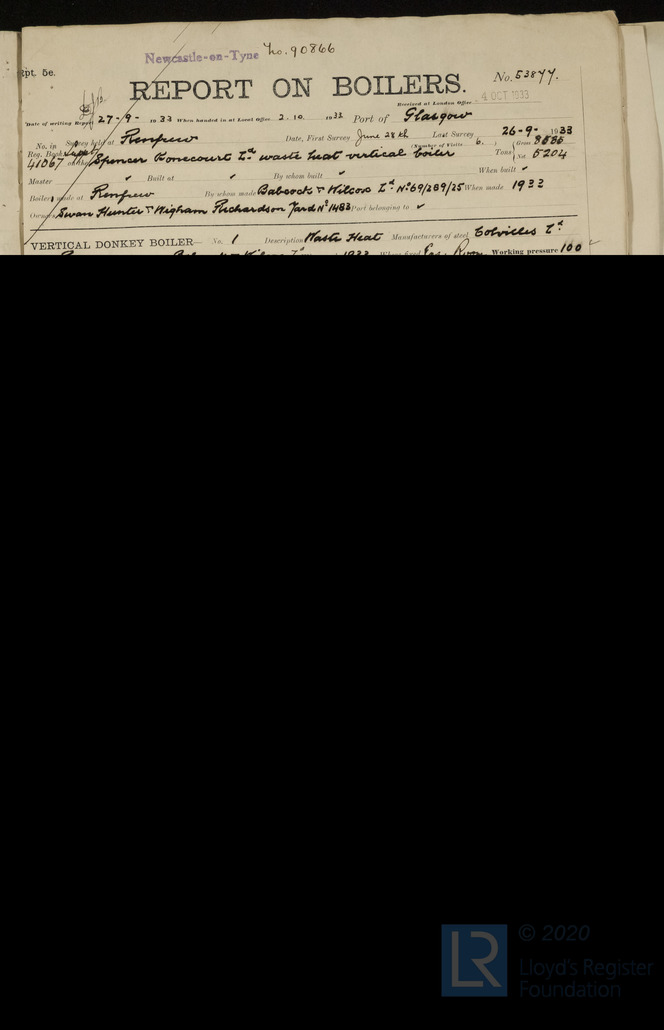 Newcastle-on-Tyne No. 90866
Rpt. 5c.
REPORT ON BOILERS.
No. 53877.
Received at London Office 4 OCT 1933
Date of writing Report 27-9-1933 When handed in at Local Office 2.10.1933 Port of Glasgow
No. in Survey held at Renfrew Date, First Survey June 28th Last Survey 26-9-1933
Reg. Book. (Number of Visits 6.) Gross 8586
41067 on the Spencer Bonecourt Ltd waste heat vertical boiler Tons Net 5204
Master " Built at " By whom built " When built "
Boilers made at Renfrew By whom made Babcock & Wilcox Ltd No 69/289/25 When made 1933
Owners Swan Hunter & Wigham Richardson Yard No 1483 Port belonging to
VERTICAL DONKEY BOILER— No. 1 Description Waste Heat Manufacturers of steel Colvilles Ltd
1933 Where fixed Eng. Room. Working pressure 100
LR © 2020
Lloyd's Register
Foundation